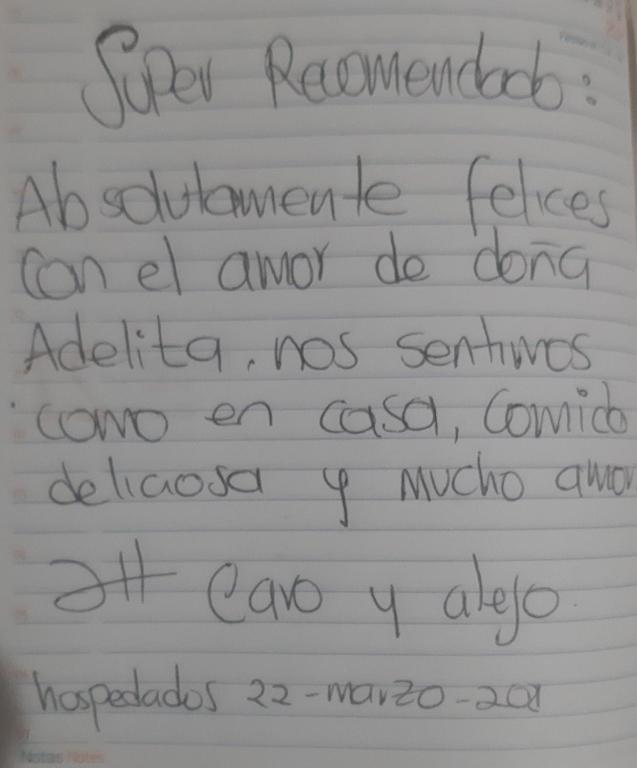 Super Recomendado:
Absolutamente felices
con el amor de doña
Adelita. nos sentimos
como en casa, comida
deliciosa y mucho amor
Att Caro y alejo.
hospedados 22-marzo-
Notas Notes